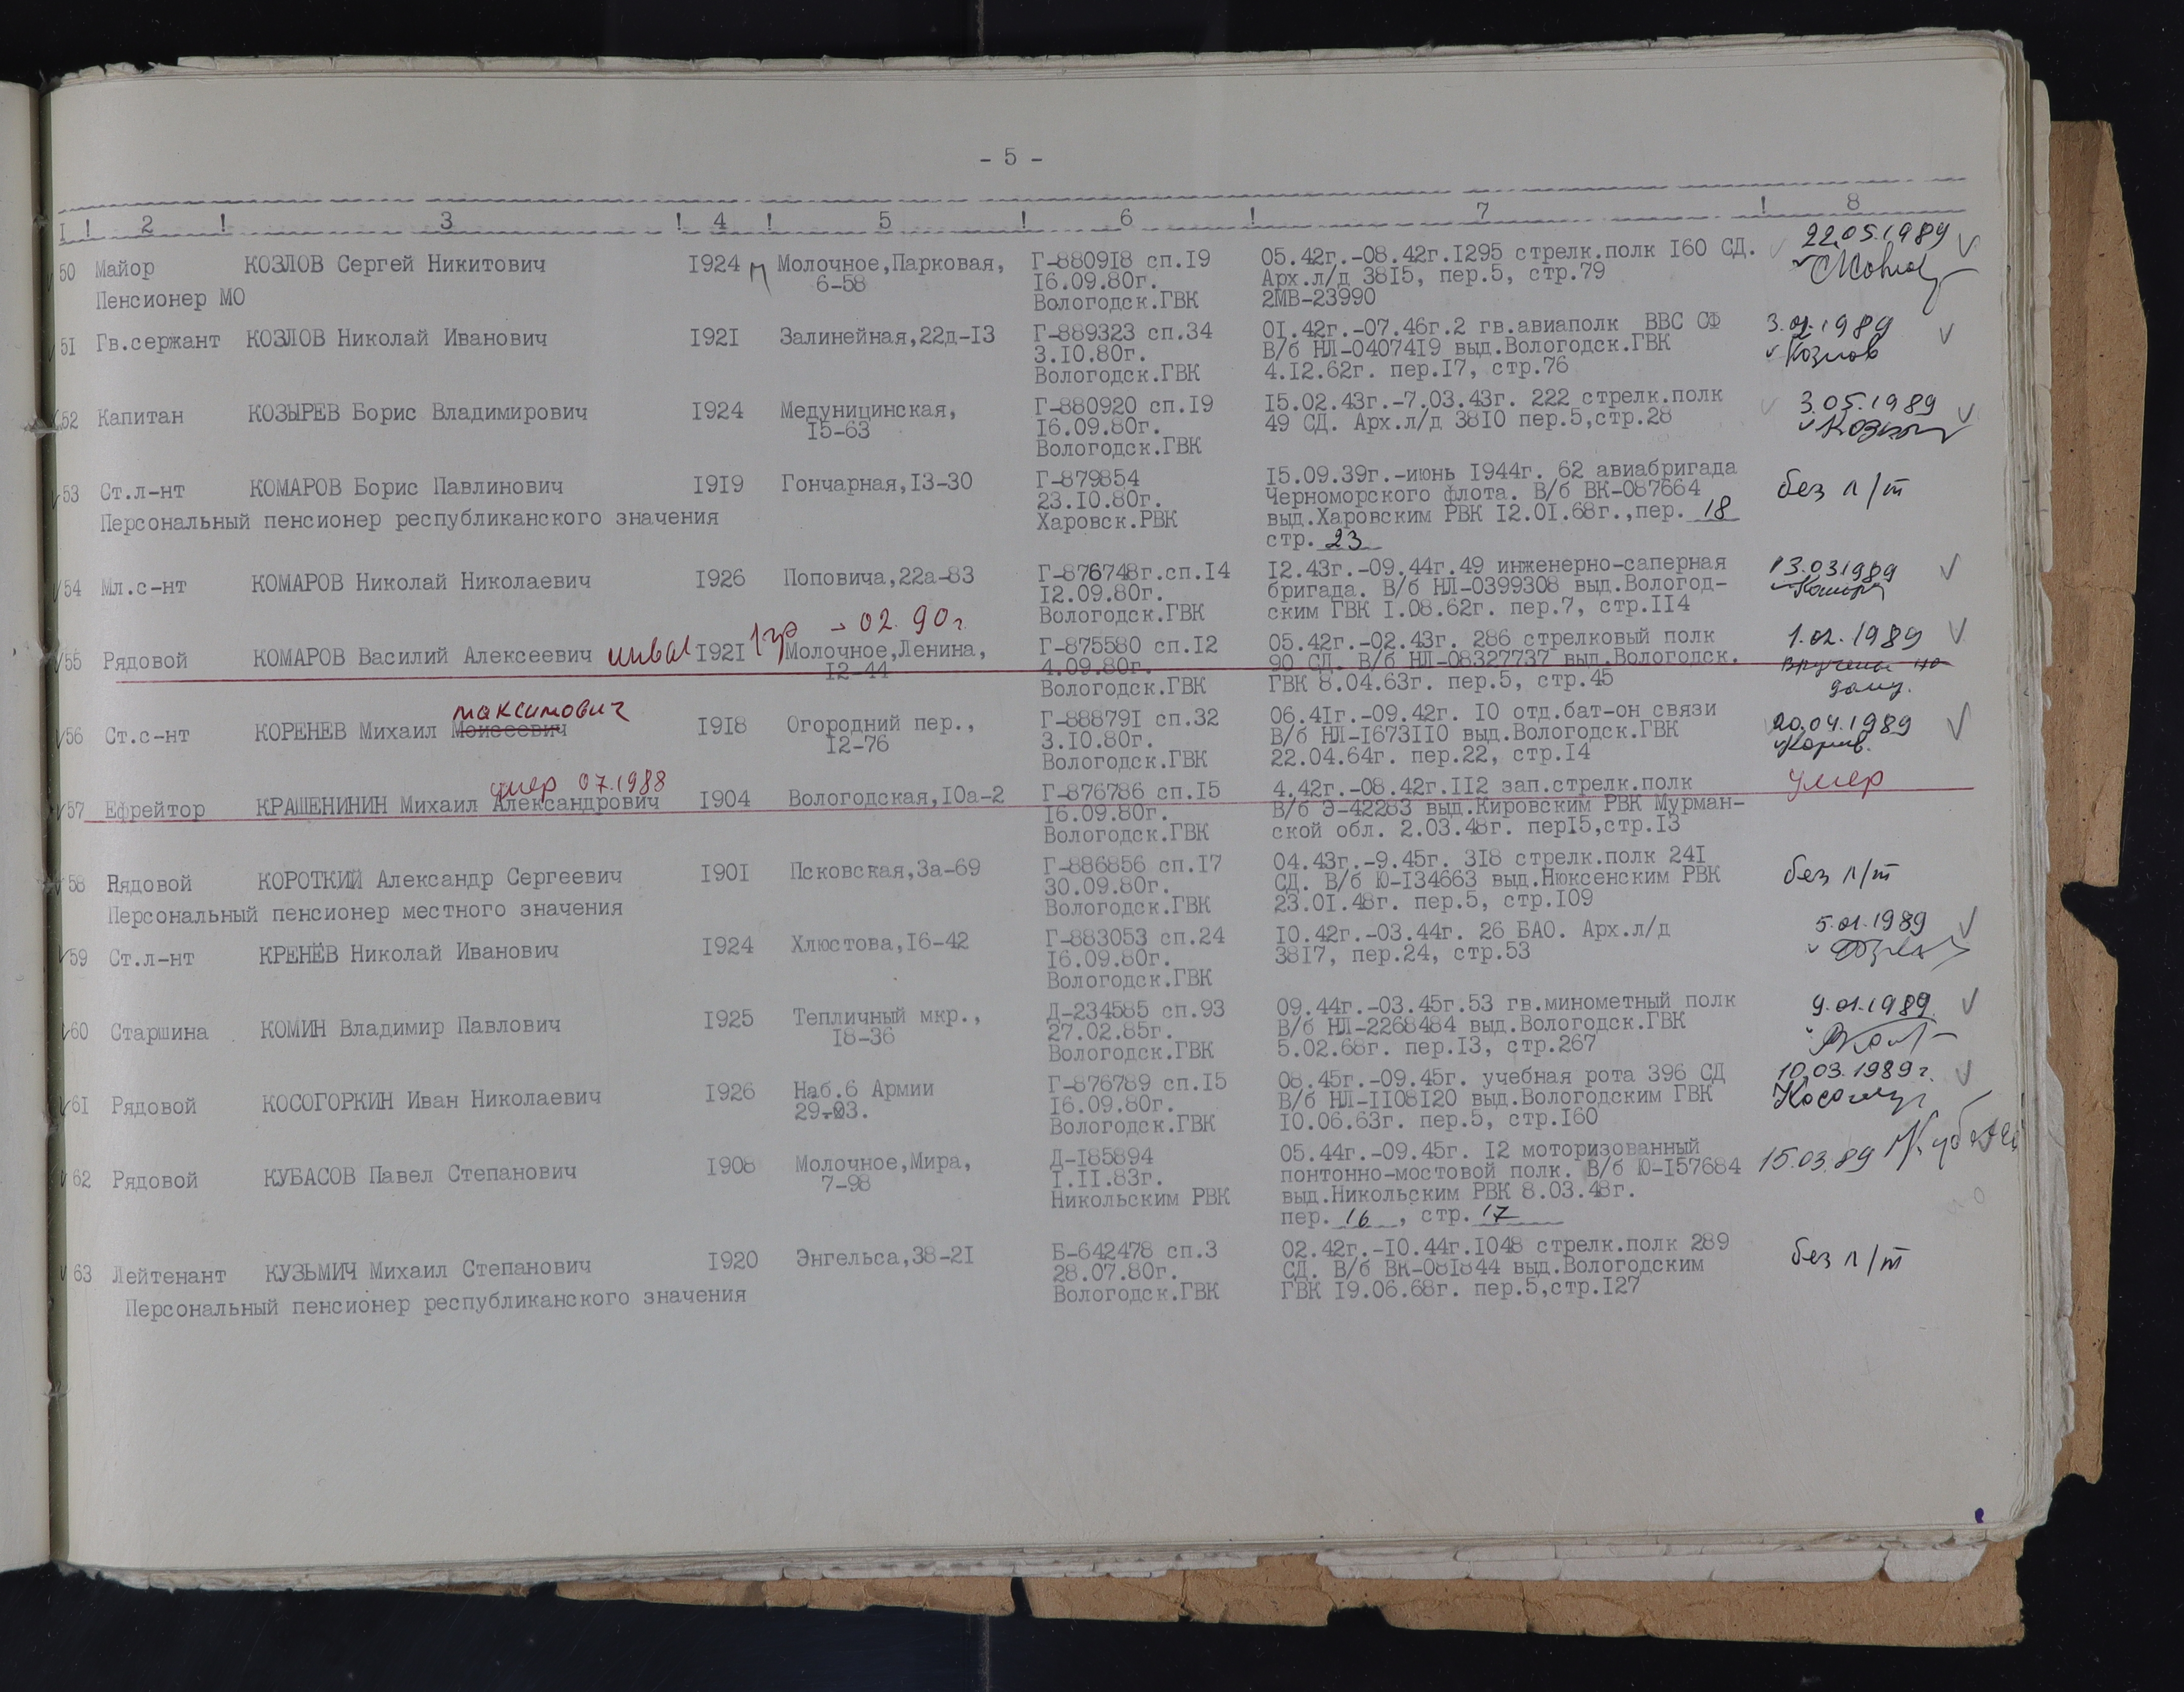 - 5 -
I ! 2 ! 3 ! 4 ! 5 ! 6 ! 7 ! 8
50 Майор КОЗЛОВ Сергей Никитович 1924 Молочное,Парковая, Г-880918 сп.19 05.42г.-08.42г.1295 стрелк.полк 160 СД. 22.05.1989
6-58 16.09.80г. Арх.л/д 3815, пер.5, стр.79
Пенсионер МО Вологодск.ГВК 2МВ-23990
51 Гв.сержант КОЗЛОВ Николай Иванович 1921 Залинейная,22д-13 Г-889323 сп.34 01.42г.-07.46г.2 гв.авиаполк ВВС СФ 3.02.1989
3.10.80г. В/б НЛ-0407419 выд.Вологодск.ГВК Козлов
Вологодск.ГВК 4.12.62г. пер.17, стр.76
52 Капитан КОЗЫРЕВ Борис Владимирович 1924 Медуницинская, Г-880920 сп.19 15.02.43г.-7.03.43г. 222 стрелк.полк 3.05.1989
15-63 16.09.80г. 49 СД. Арх.л/д 3810 пер.5,стр.28
Вологодск.ГВК
53 Ст.л-нт КОМАРОВ Борис Павлинович 1919 Гончарная,13-30 Г-879854 15.09.39г.-июнь 1944г. 62 авиабригада без п/т
23.10.80г. Черноморского флота. В/б ВК-087664
Персональный пенсионер республиканского значения Харовск.РВК выд.Харовским РВК 12.01.68г.,пер. 18
стр. 23
54 Мл.с-нт КОМАРОВ Николай Николаевич 1926 Поповича,22а-83 Г-876748г.сп.14 12.43г.-09.44г.49 инженерно-саперная 13.03.1989
12.09.80г. бригада. В/б НЛ-0399308 выд.Вологод-
Вологодск.ГВК ским ГВК 1.08.62г. пер.7, стр.114
1гр - 02. 90г.
55 Рядовой КОМАРОВ Василий Алексеевич инвал 1921 Молочное,Ленина, Г-875580 сп.12 05.42г.-02.43г. 286 стрелковый полк 1.02.1989
12-44 4.09.80г. 90 СД. В/б НЛ-08327737 выд.Вологодск. Вручены на
Вологодск.ГВК ГВК 8.04.63г. пер.5, стр.45 дому.
максимович
56 Ст.с-нт КОРЕНЕВ Михаил Моисеевич 1918 Огородний пер., Г-888791 сп.32 06.41г.-09.42г. 10 отд.бат-он связи 20.04.1989
12-76 3.10.80г. В/б НЛ-1673110 выд.Вологодск.ГВК
Вологодск.ГВК 22.04.64г. пер.22, стр.14
умер 07.1988
57 Ефрейтор КРАШЕНИНИН Михаил Александрович 1904 Вологодская,10а-2 Г-876786 сп.15 4.42г.-08.42г.112 зап.стрелк.полк умер
16.09.80г. В/б Э-42283 выд.Кировским РВК Мурман-
Вологодск.ГВК ской обл. 2.03.48г. пер15,стр.13
58 Рядовой КОРОТКИЙ Александр Сергеевич 1901 Псковская,3а-69 Г-886856 сп.17 04.43г.-9.45г. 318 стрелк.полк 241 без п/т
30.09.80г. СД. В/б Ю-134663 выд.Нюксенским РВК
Персональный пенсионер местного значения Вологодск.ГВК 23.01.48г. пер.5, стр.109
59 Ст.л-нт КРЕНЁВ Николай Иванович 1924 Хлюстова,16-42 Г-883053 сп.24 10.42г.-03.44г. 26 БАО. Арх.л/д 5.01.1989
16.09.80г. 3817, пер.24, стр.53
Вологодск.ГВК
60 Старшина КОМИН Владимир Павлович 1925 Тепличный мкр., Д-234585 сп.93 09.44г.-03.45г.53 гв.минометный полк 9.01.1989
18-36 27.02.85г. В/б НЛ-2268484 выд.Вологодск.ГВК
Вологодск.ГВК 5.02.68г. пер.13, стр.267
61 Рядовой КОСОГОРКИН Иван Николаевич 1926 Наб.6 Армии Г-876789 сп.15 08.45г.-09.45г. учебная рота 396 СД 10.03.1989г.
29-93. 16.09.80г. В/б НЛ-1108120 выд.Вологодским ГВК
Вологодск.ГВК 10.06.63г. пер.5, стр.160
62 Рядовой КУБАСОВ Павел Степанович 1908 Молочное,Мира, Д-185894 05.44г.-09.45г. 12 моторизованный 15.03.89
7-98 1.11.83г. понтонно-мостовой полк. В/б Ю-157684
Никольским РВК выд.Никольским РВК 8.03.48г.
пер. 16 , стр. 17
63 Лейтенант КУЗЬМИЧ Михаил Степанович 1920 Энгельса,38-21 Б-642478 сп.3 02.42г.-10.44г.1048 стрелк.полк 289 без п/т
28.07.80г. СД. В/б ВК-081844 выд.Вологодским
Персональный пенсионер республиканского значения Вологодск.ГВК ГВК 19.06.68г. пер.5,стр.127